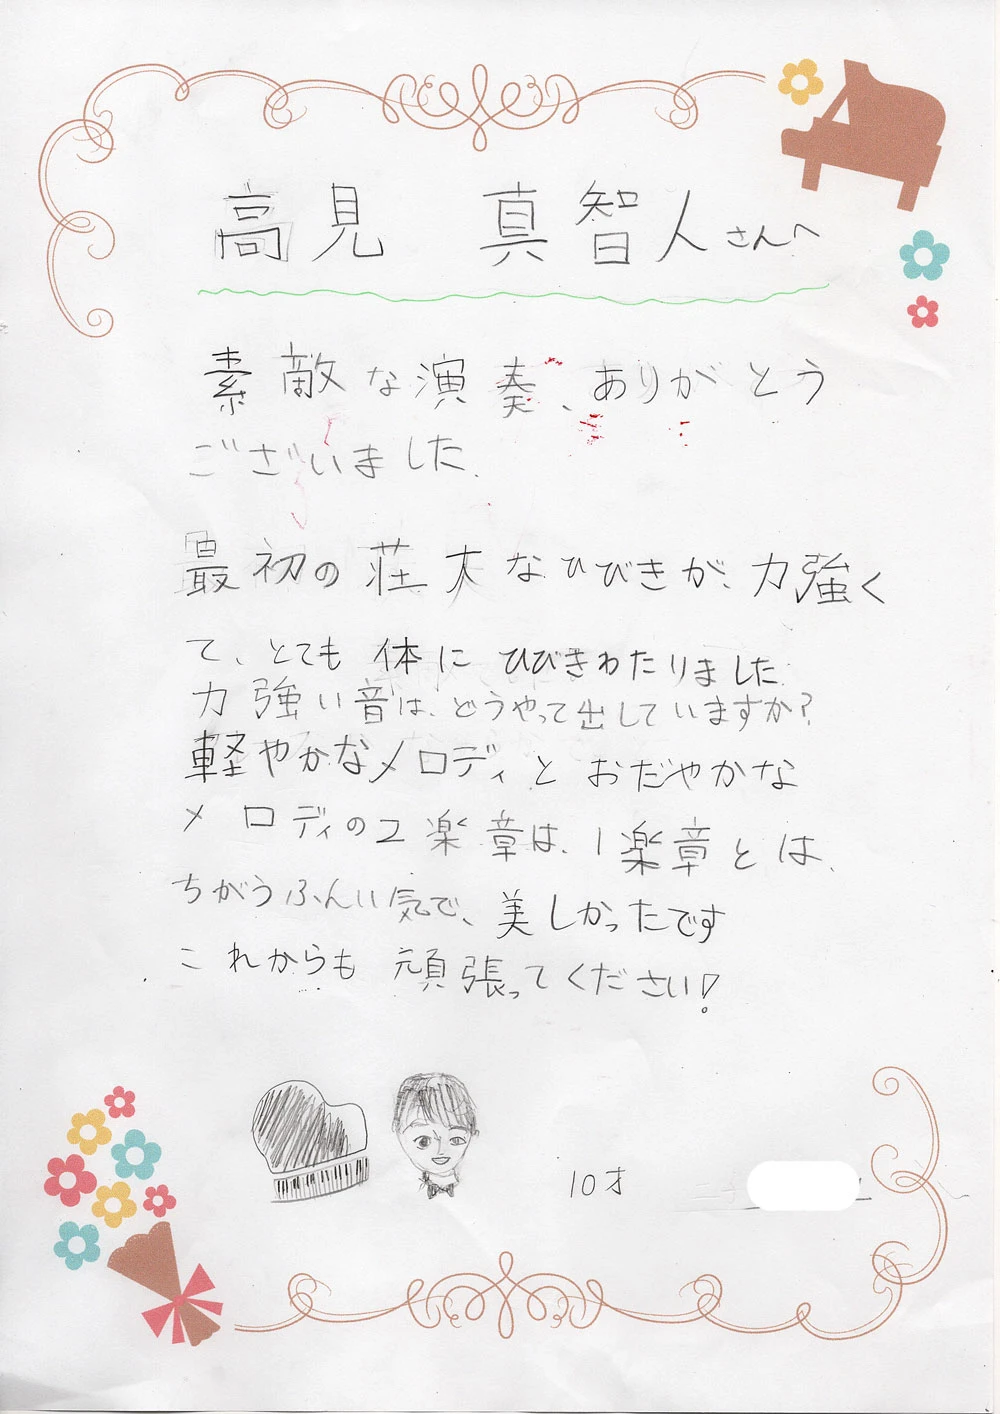 高見 真智人さんへ
素敵な演奏、ありがとう
ございました。
最初の荘大なひびきが、力強く
て、とても体にひびきわたりました。
力強い音は、どうやって出していますか?
軽やかなメロディとおだやかな
メロディの2楽章は、1楽章とは、
ちがうふんい気で、美しかったです
これからも頑張ってください!
10才